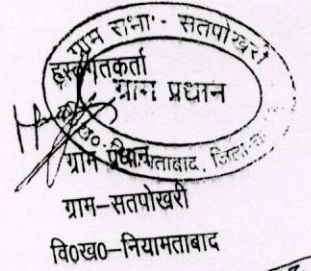 ग्राम सभा - सतपोखरी
हस्ताक्षरकर्ता
ग्राम प्रधान
ग्राम प्रधान
नियामताबाद, जिला-
ग्राम–सतपोखरी
वि०ख०–नियामताबाद